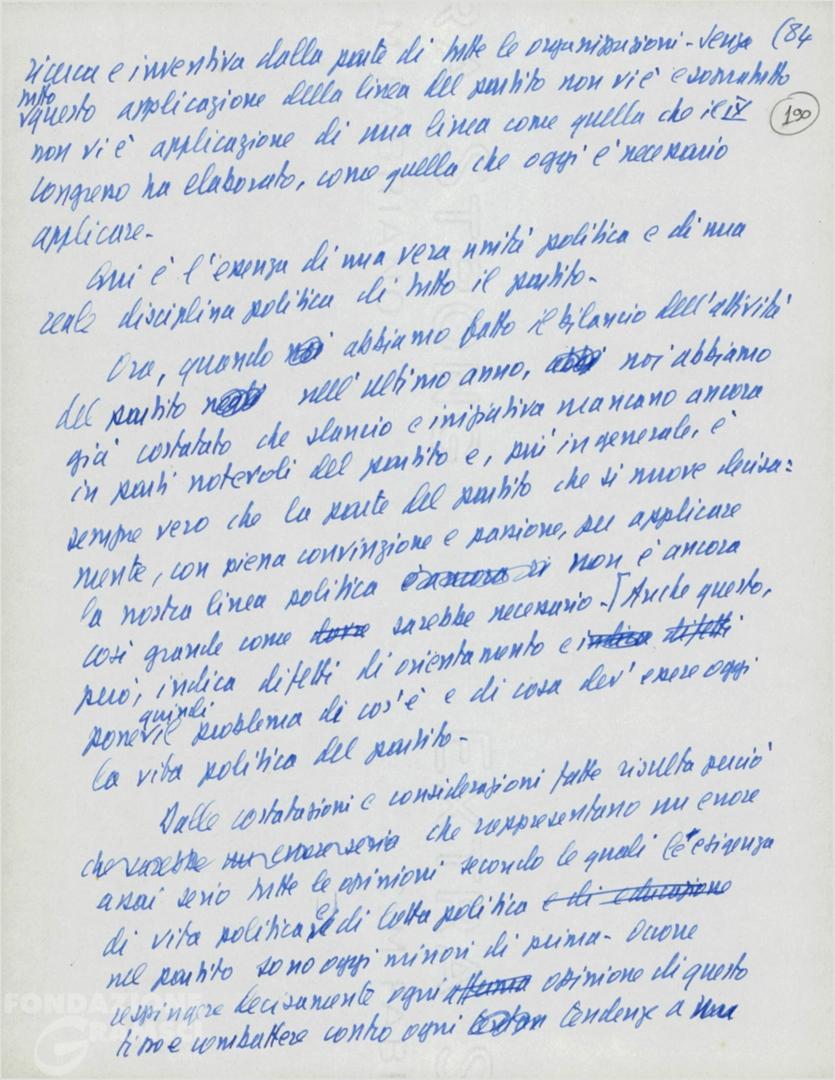 (84
190
ricerca e inventiva dalla parte di tutte le organizzazioni - senza
tutto
questo applicazione della linea del partito non vi è e sopratutto
non vi è applicazione di una linea come quella che il IX
congresso ha elaborato, come quella che oggi è necessario
applicare -
Qui è l'essenza di una vera unità politica e di una
reale disciplina politica di tutto il partito -
Ora, quando noi abbiamo fatto il bilancio dell'attività
del partito negli nell'ultimo anno, noi abbiamo
già costatato che slancio e iniziativa mancano ancora
in parti notevoli del partito e, più in generale, è
sempre vero che la parte del partito che si muove decisa=
mente, con piena convinzione e passione, per applicare
la nostra linea politica è ancora non è ancora
così grande come sarebbe necessario - [Anche questo,
però, indica difetti di orientamento e indica difetti
quindi
pone il problema di cos'è e di cosa dev'essere oggi
la vita politica del partito -
Dalle costatazioni e considerazioni fatte risulta perciò
che sarebbe un errore serio che rappresentano un errore
assai serio tutte le opinioni secondo le quali le esigenza
di vita politica e di lotta politica e di educazione
nel partito sono oggi minori di prima - Occorre
respingere decisamente ogni opinione di questo
tipo e combattere contro ogni tendenza a una
FONDAZIONE
GRAMSCI